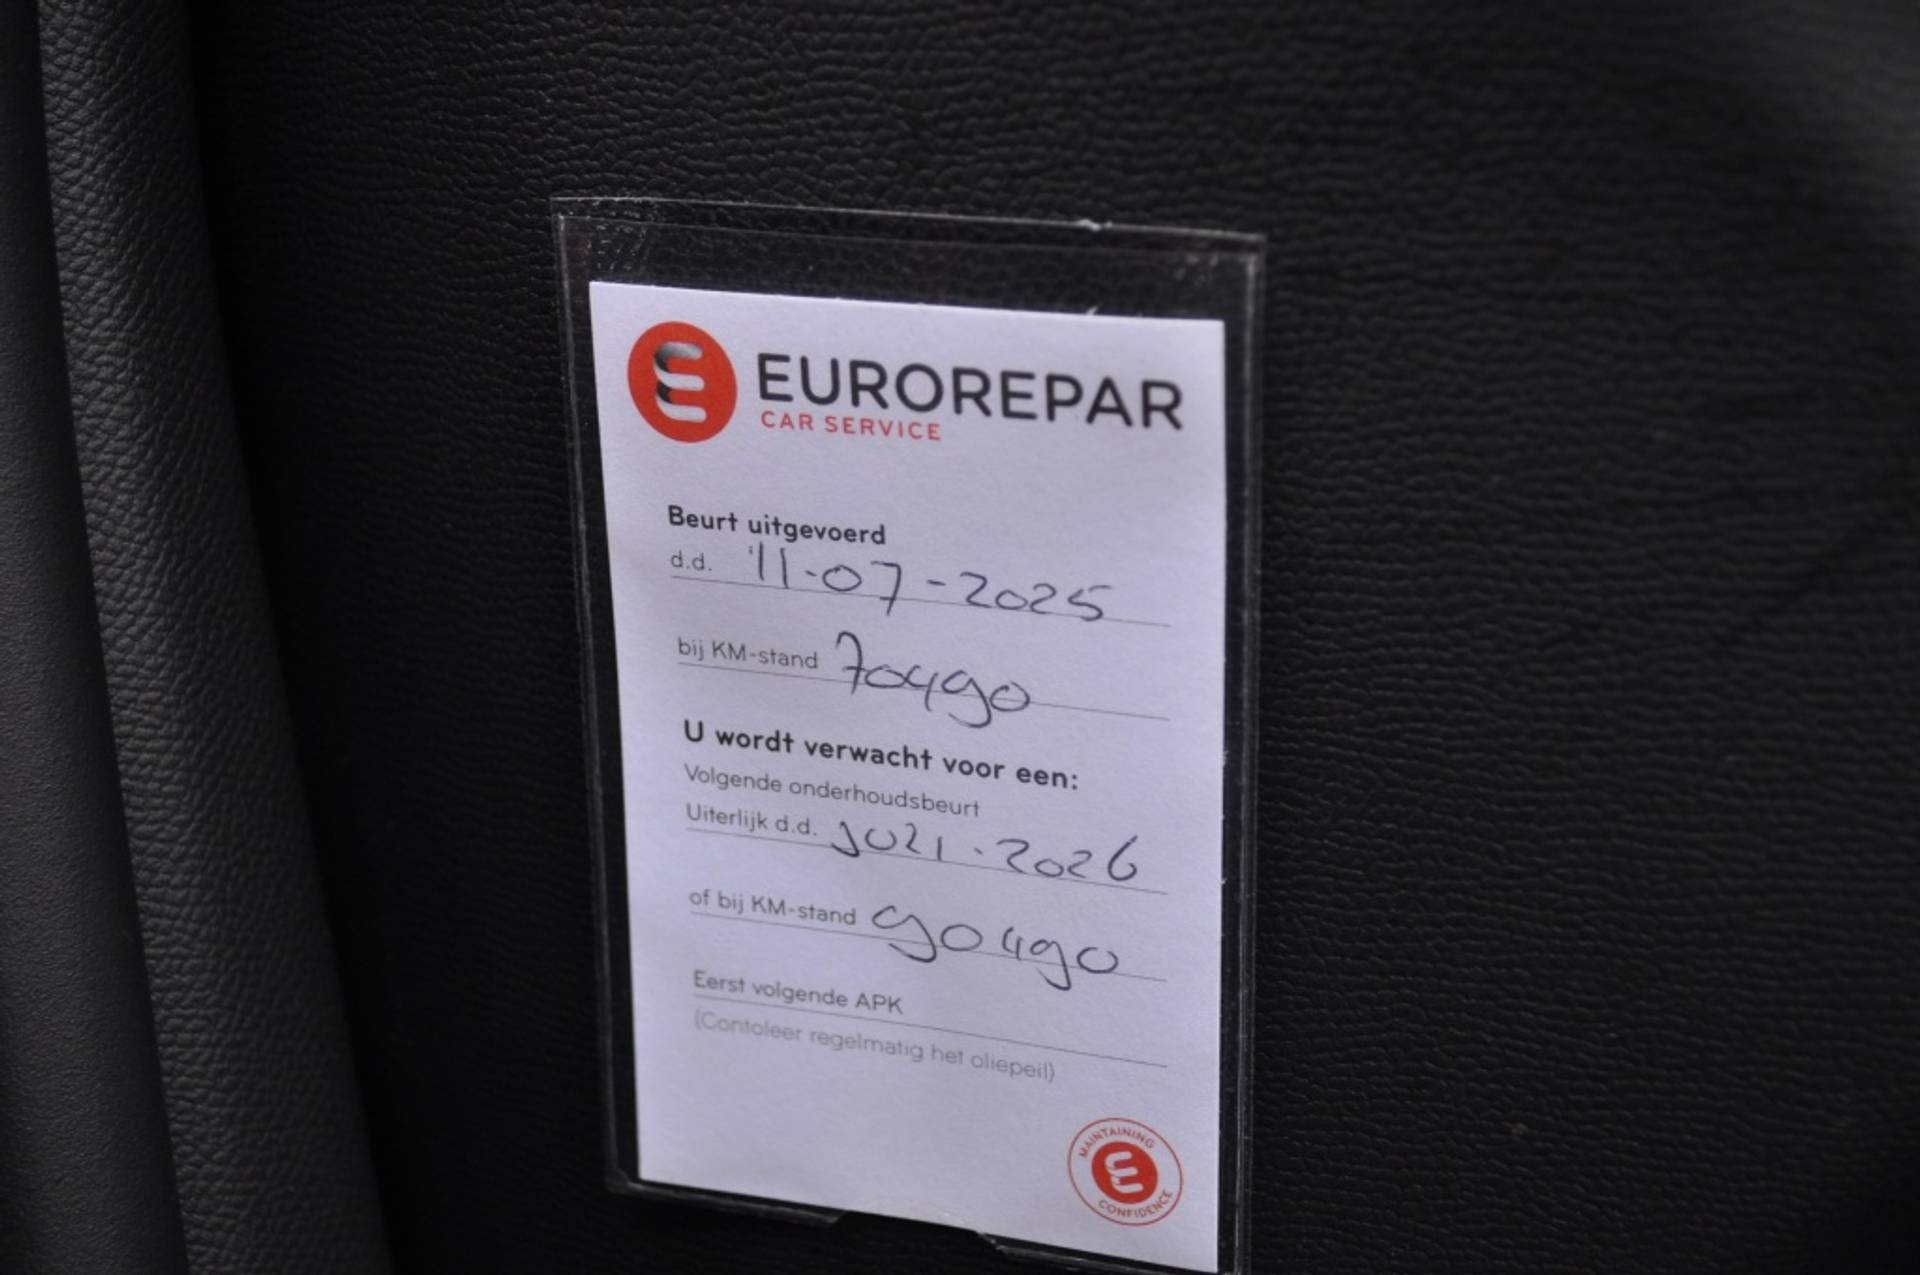 EUROREPAR
CAR SERVICE
Beurt uitgevoerd
d.d. 11-07-2025
bij KM-stand 70490
U wordt verwacht voor een:
Volgende onderhoudsbeurt
Uiterlijk d.d. JULI-2026
of bij KM-stand 90490
Eerst volgende APK
(Contoleer regelmatig het oliepeil)
MAINTAINING
CONFIDENCE